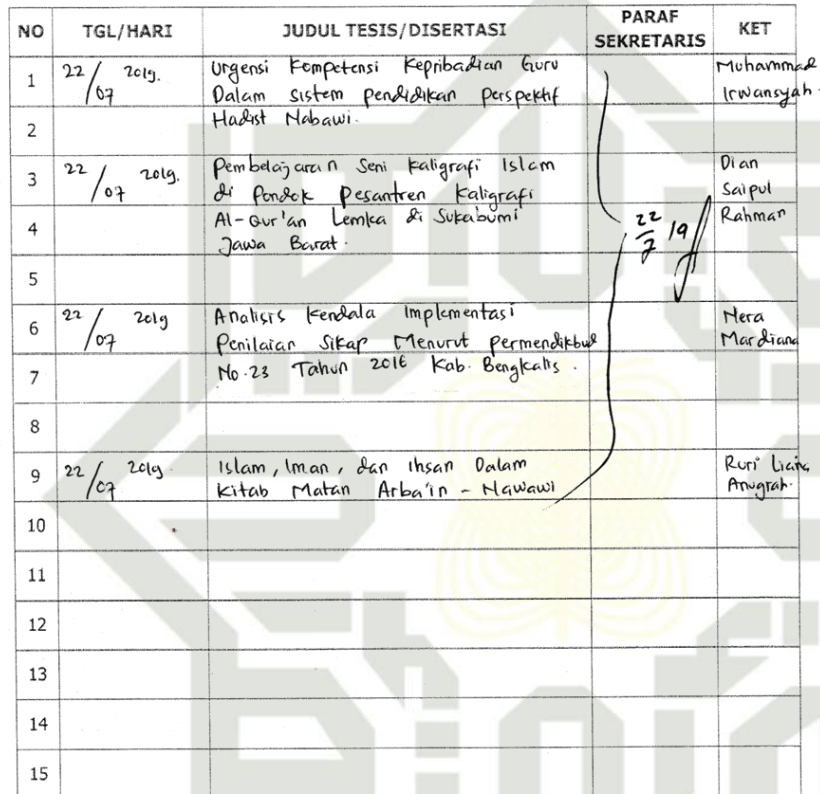 NO TGL/HARI JUDUL TESIS/DISERTASI PARAF SEKRETARIS KET
1 22/07 2019. Urgensi Kompetensi Kepribadian Guru Muhammad
Dalam sistem pendidikan perspektif Irwansyah.
2 Hadist Nabawi.
3 22/07 2019. Pembelajaran Seni kaligrafi Islam Dian
di Pondok Pesantren Kaligrafi Saipul
4 Al-Qur'an Lemka di Sukabumi 22/7 19 Rahman
Jawa Barat.
5
6 22/07 2019 Analisis Kendala Implementasi Nera
Penilaian Sikap Menurut permendikbud Mardiana
7 No.23 Tahun 2016 Kab. Bengkalis.
8
9 22/07 2019. Islam, Iman, dan Ihsan Dalam Ruri
kitab Matan Arba'in - Nawawi Anugrah.
10
11
12
13
14
15